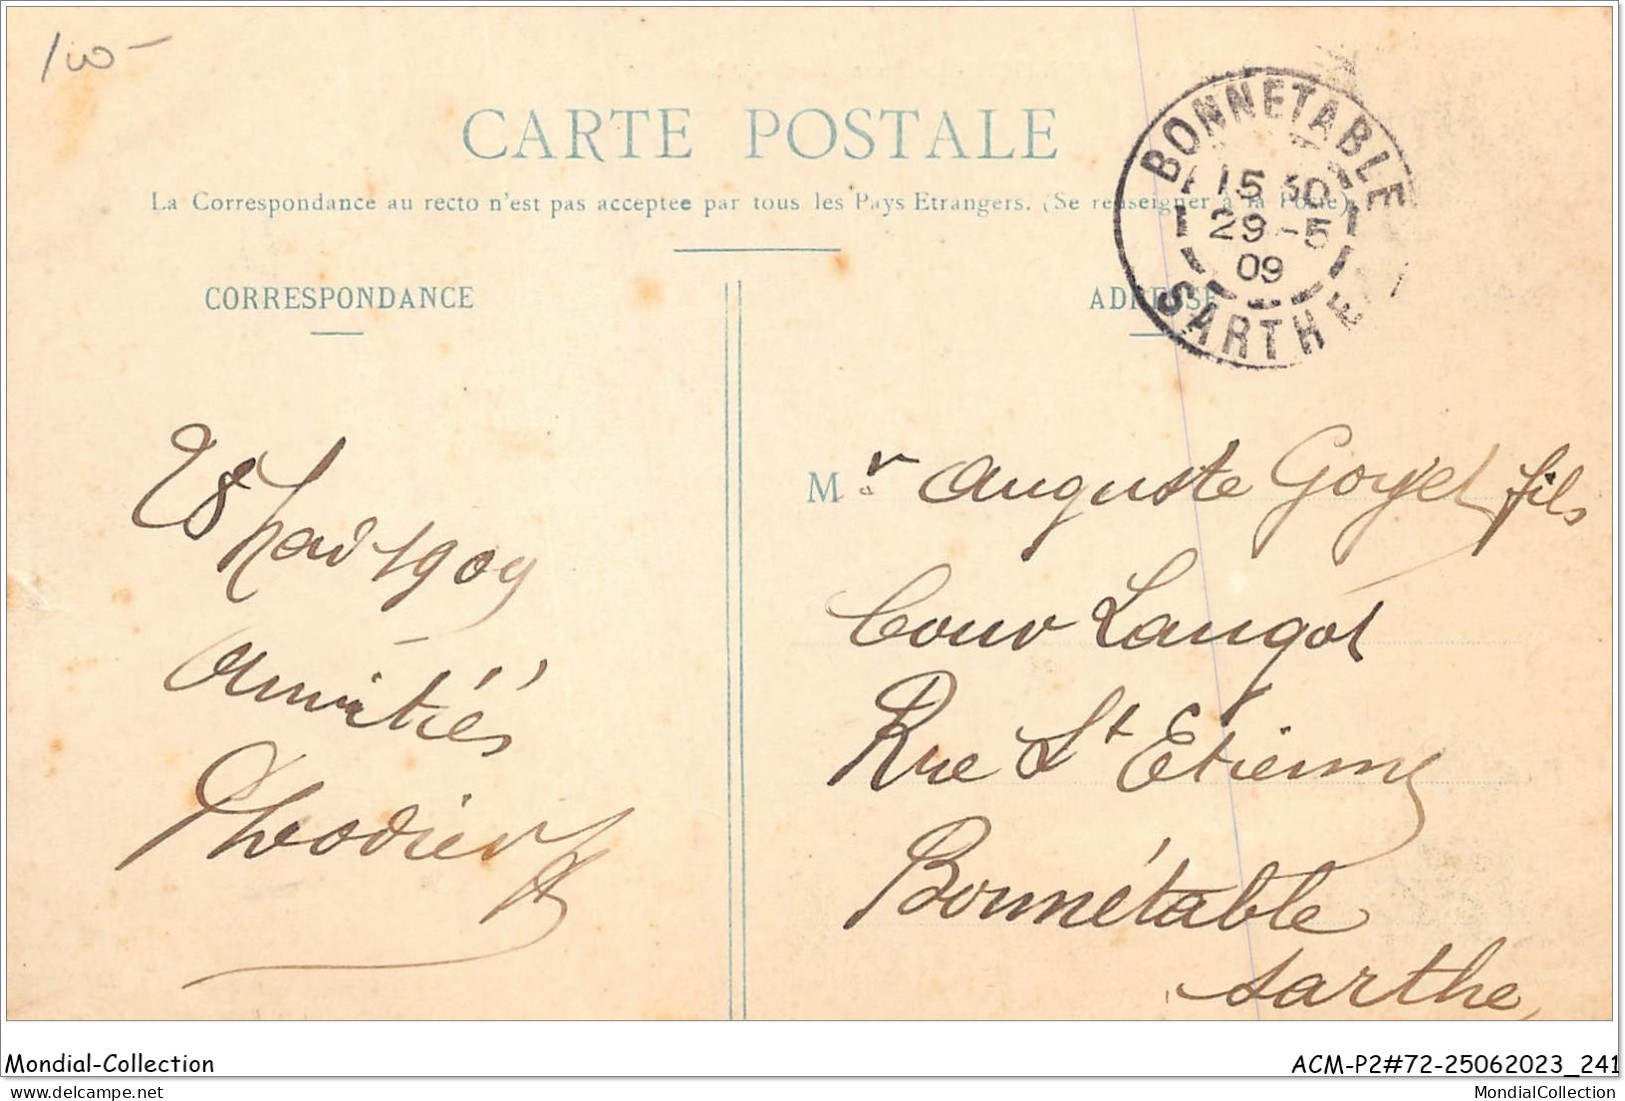 100-
CARTE POSTALE
La Correspondance au recto n'est pas acceptee par tous les Pays Etrangers. (Se renseigner à la Poste)
BONNETABLE
15 30
29-5
09
SARTHE
CORRESPONDANCE
ADRESSE
28 1909
Amitiés
M r Auguste Goyet fils
Cour Langot
Rue St Etienne
Bonnétable
Sarthe
Mondial-Collection
ACM-P2#72-25062023_241
MondialCollection